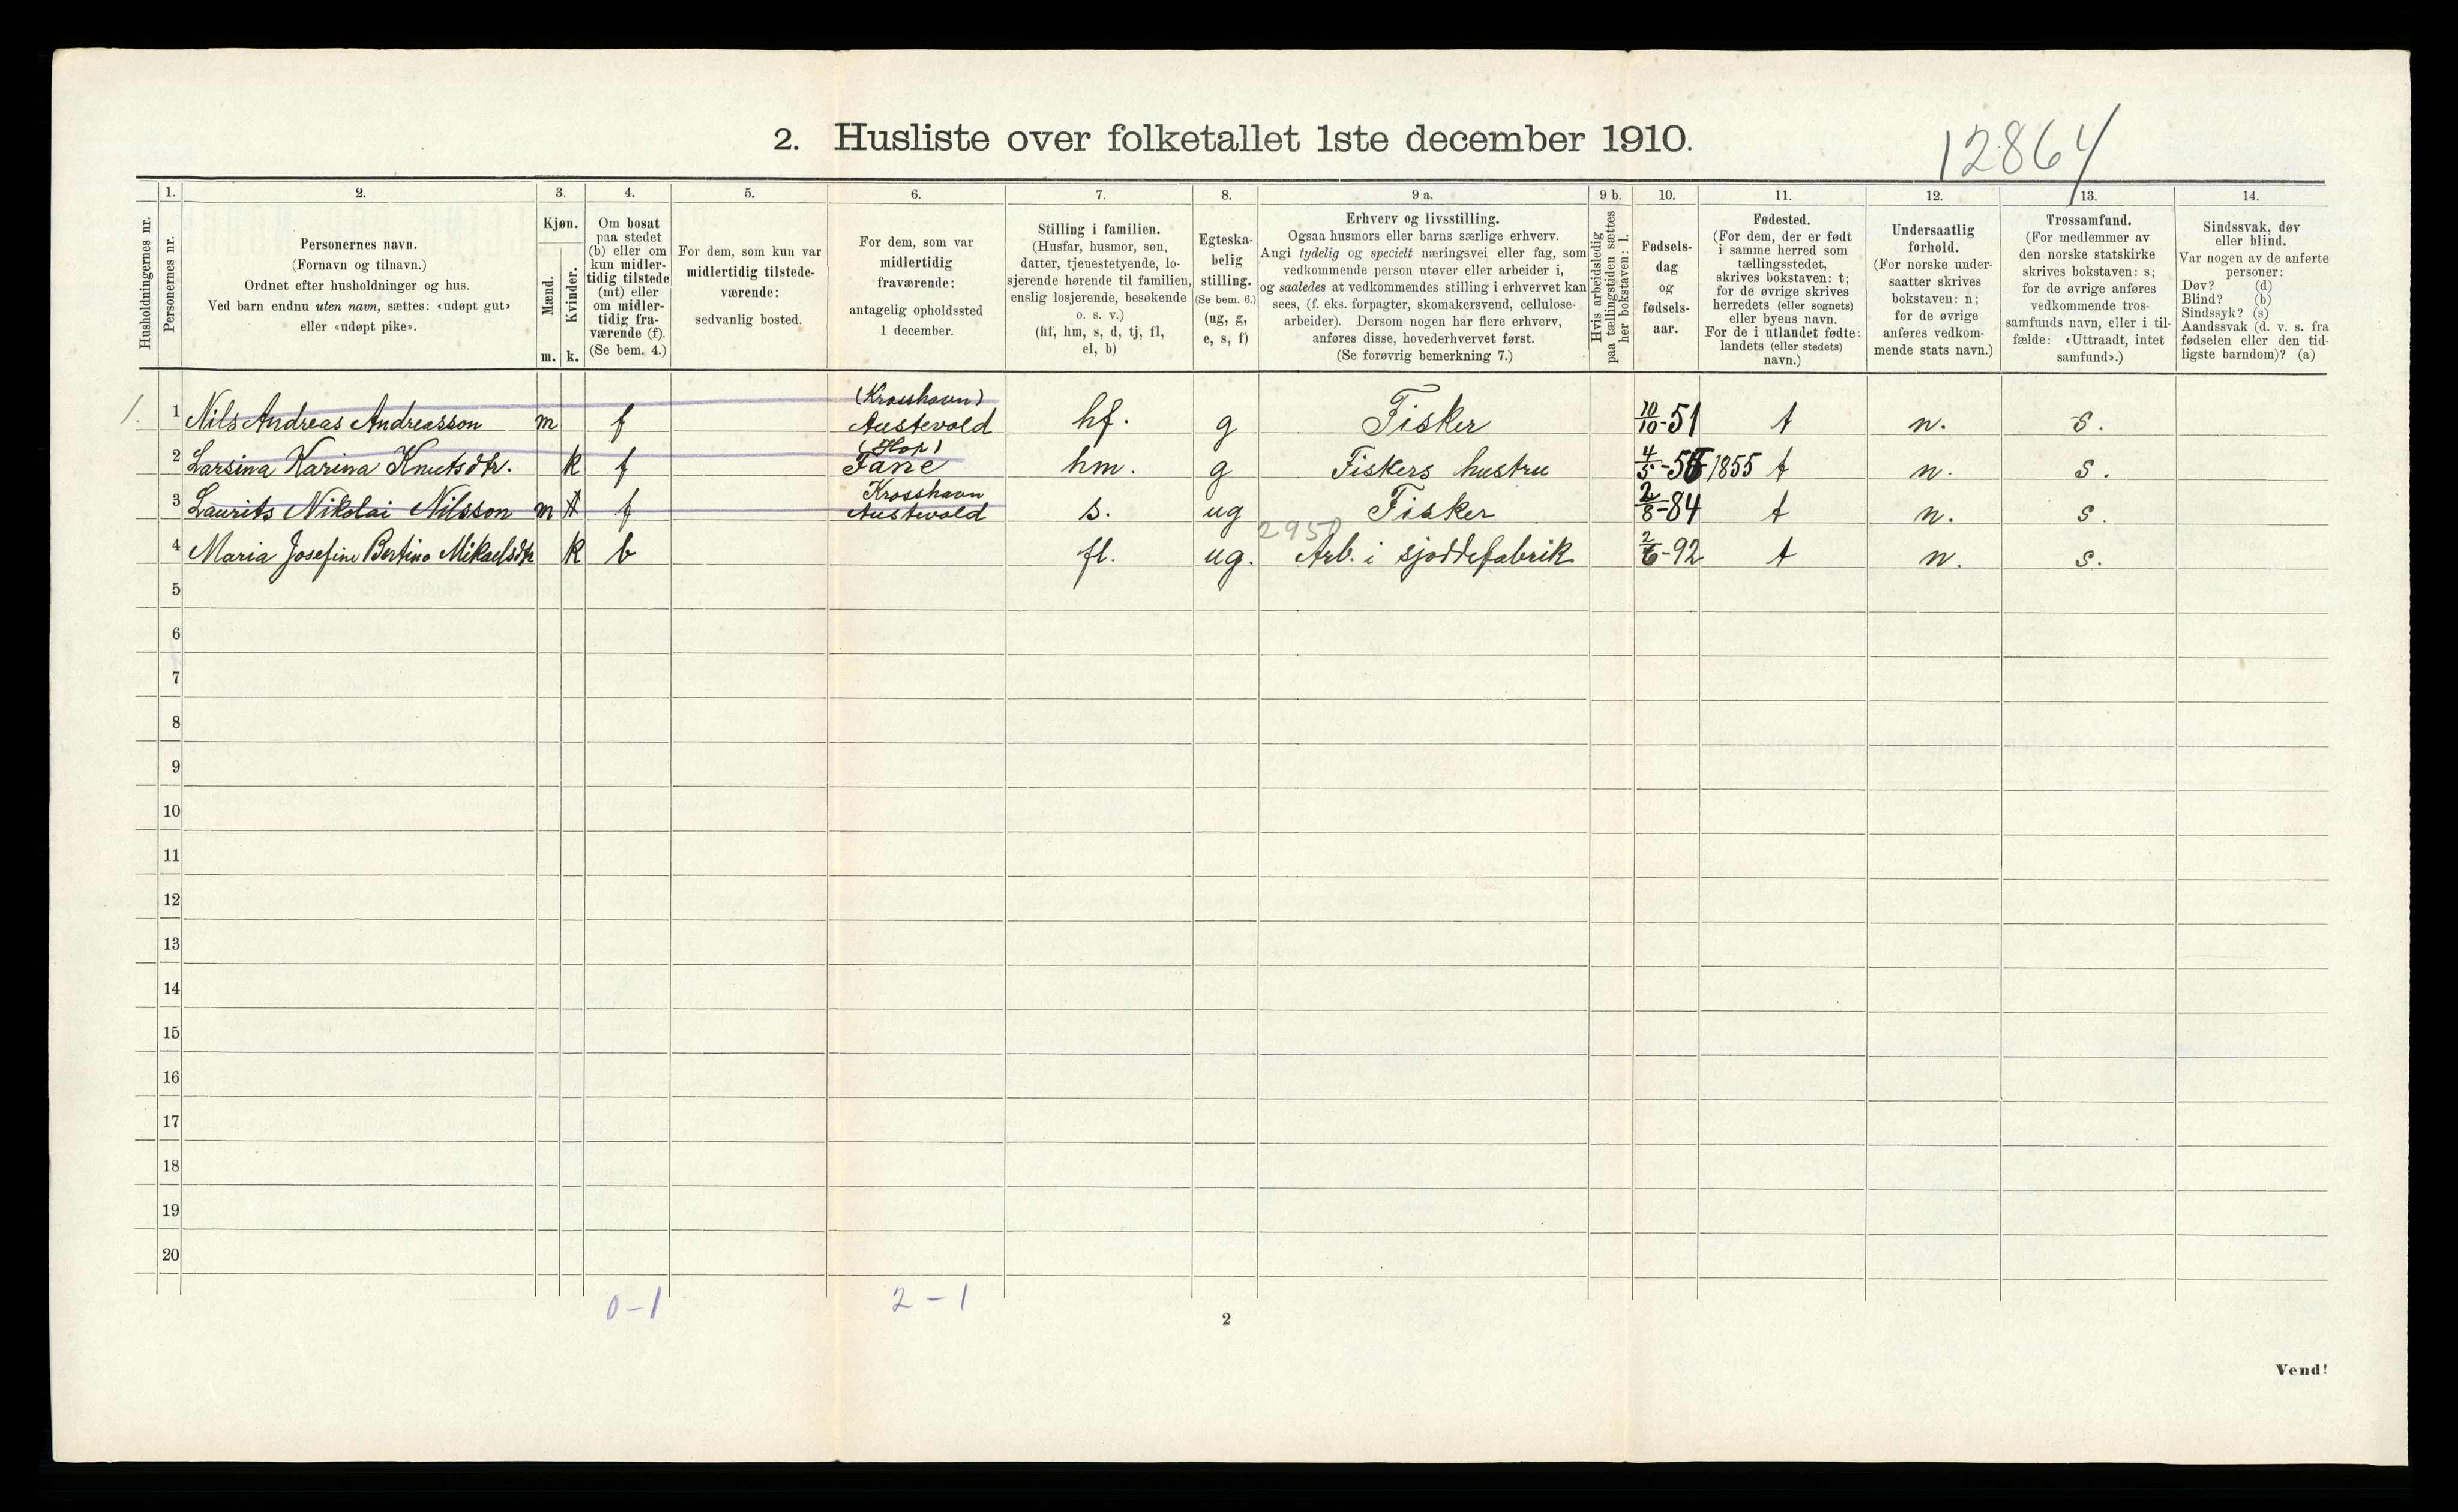 2. Husliste over folketallet 1ste december 1910.
12864
Husholdningernes nr.
1.
Personernes nr.
2.
Personernes navn.
(Fornavn og tilnavn.)
Ordnet efter husholdninger og hus.
Ved barn endnu uten navn, sættes: «udøpt gut»
eller «udøpt pike».
3.
Kjøn.
Mænd.
Kvinder.
m. k.
4.
Om bosat
paa stedet
(b) eller om
kun midler-
tidig tilstede
(mt) eller
om midler-
tidig fra-
værende (f).
(Se bem. 4.)
5.
For dem, som kun var
midlertidig tilstede-
værende:
sedvanlig bosted.
6.
For dem, som var
midlertidig
fraværende:
antagelig opholdssted
1 december.
7.
Stilling i familien.
(Husfar, husmor, søn,
datter, tjenestetyende, lo-
sjerende hørende til familien,
enslig losjerende, besøkende
o. s. v.)
(hf, hm, s, d, tj, fl,
el, b)
8.
Egteska-
belig
stilling.
(Se bem. 6.)
(ug, g,
e, s, f)
9 a.
Erhverv og livsstilling.
Ogsaa husmors eller barns særlige erhverv.
Angi tydelig og specielt næringsvei eller fag, som
vedkommende person utøver eller arbeider i,
og saaledes at vedkommendes stilling i erhvervet kan
sees, (f. eks. forpagter, skomakersvend, cellulose-
arbeider). Dersom nogen har flere erhverv,
anføres disse, hovederhvervet først.
(Se forøvrig bemerkning 7.)
9 b.
Hvis arbeidsledig
paa tællingstiden sættes
her bokstaven: l.
10.
Fødsels-
dag
og
fødsels-
aar.
11.
Fødested.
(For dem, der er født
i samme herred som
tællingsstedet,
skrives bokstaven: t;
for de øvrige skrives
herredets (eller sognets)
eller byens navn.
For de i utlandet fødte:
landets (eller stedets)
navn.)
12.
Undersaatlig
forhold.
(For norske under-
saatter skrives
bokstaven: n;
for de øvrige
anføres vedkom-
mende stats navn.)
13.
Trossamfund.
(For medlemmer av
den norske statskirke
skrives bokstaven: s;
for de øvrige anføres
vedkommende tros-
samfunds navn, eller i til-
fælde: «Uttraadt, intet
samfund».)
14.
Sindssvak, døv
eller blind.
Var nogen av de anførte
personer:
Døv? (d)
Blind? (b)
Sindssyk? (s)
Aandssvak (d. v. s. fra
fødselen eller den tid-
ligste barndom)? (a)
(Krosshavn)
1. 1 Nils Andreas Andreasson m f Austevold hf. g Fisker 10/10-51 t n. s.
(Hop)
2 Larsina Karina Knutsdtr. k f Fane hm. g Fiskers hustru 4/5-55 1855 t n. s.
Krosshavn
3 Laurits Nikolai Nilsson m f Austevold s. ug Fisker 2/8-84 t n. s.
4 Maria Josefine Bertine Mikaelsdtr k b fl. ug. Arb. i sjoddefabrik 2/6-92 t n. s.
5
6
7
8
9
10
11
12
13
14
15
16
17
18
19
20
0-1 2-1
2
Vend!